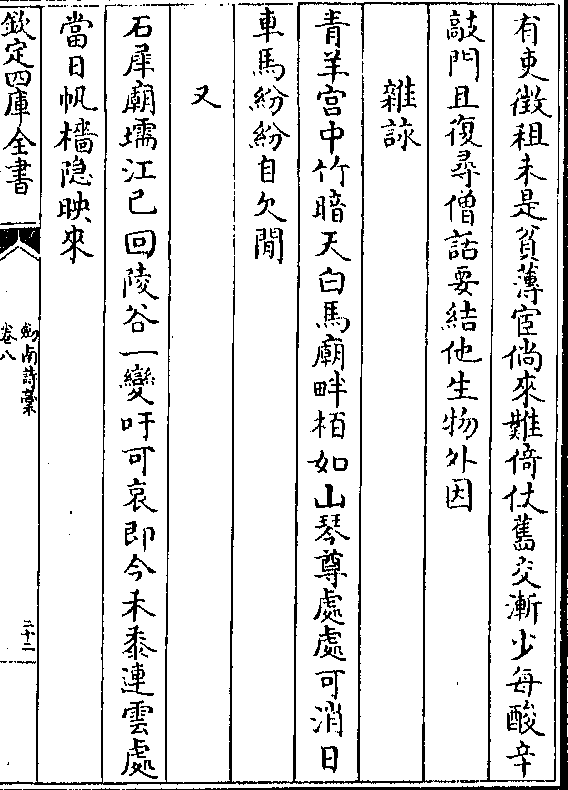 有吏徵租未是貧薄宦倘來難倚仗舊交漸少每酸辛
敲門且復尋僧話要結他生物外因
雜詠
青羊宮中竹暗天白馬廟畔栢如山琴尊處處可消日
車馬紛紛自欠閒
又
石犀廟壖江已回陵谷一變吁可哀即今禾黍連雲處
當日帆檣隠映來
欽定四庫全書
劍南詩槀
卷八
二十二